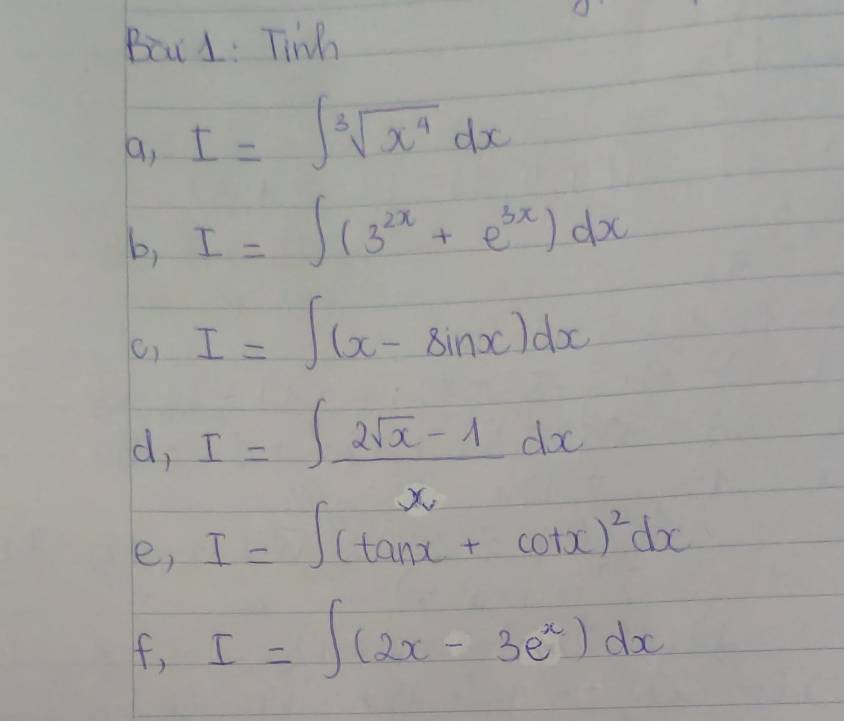 Bài 1: Tính
a, I = ∫ ∛(x⁴) dx
b, I = ∫(3²ˣ + e³ˣ) dx
c, I = ∫(x - sinx)dx
d, I = ∫ (2√x - 1)/x dx
e, I = ∫(tanx + cotx)² dx
f, I = ∫(2x - 3eˣ) dx